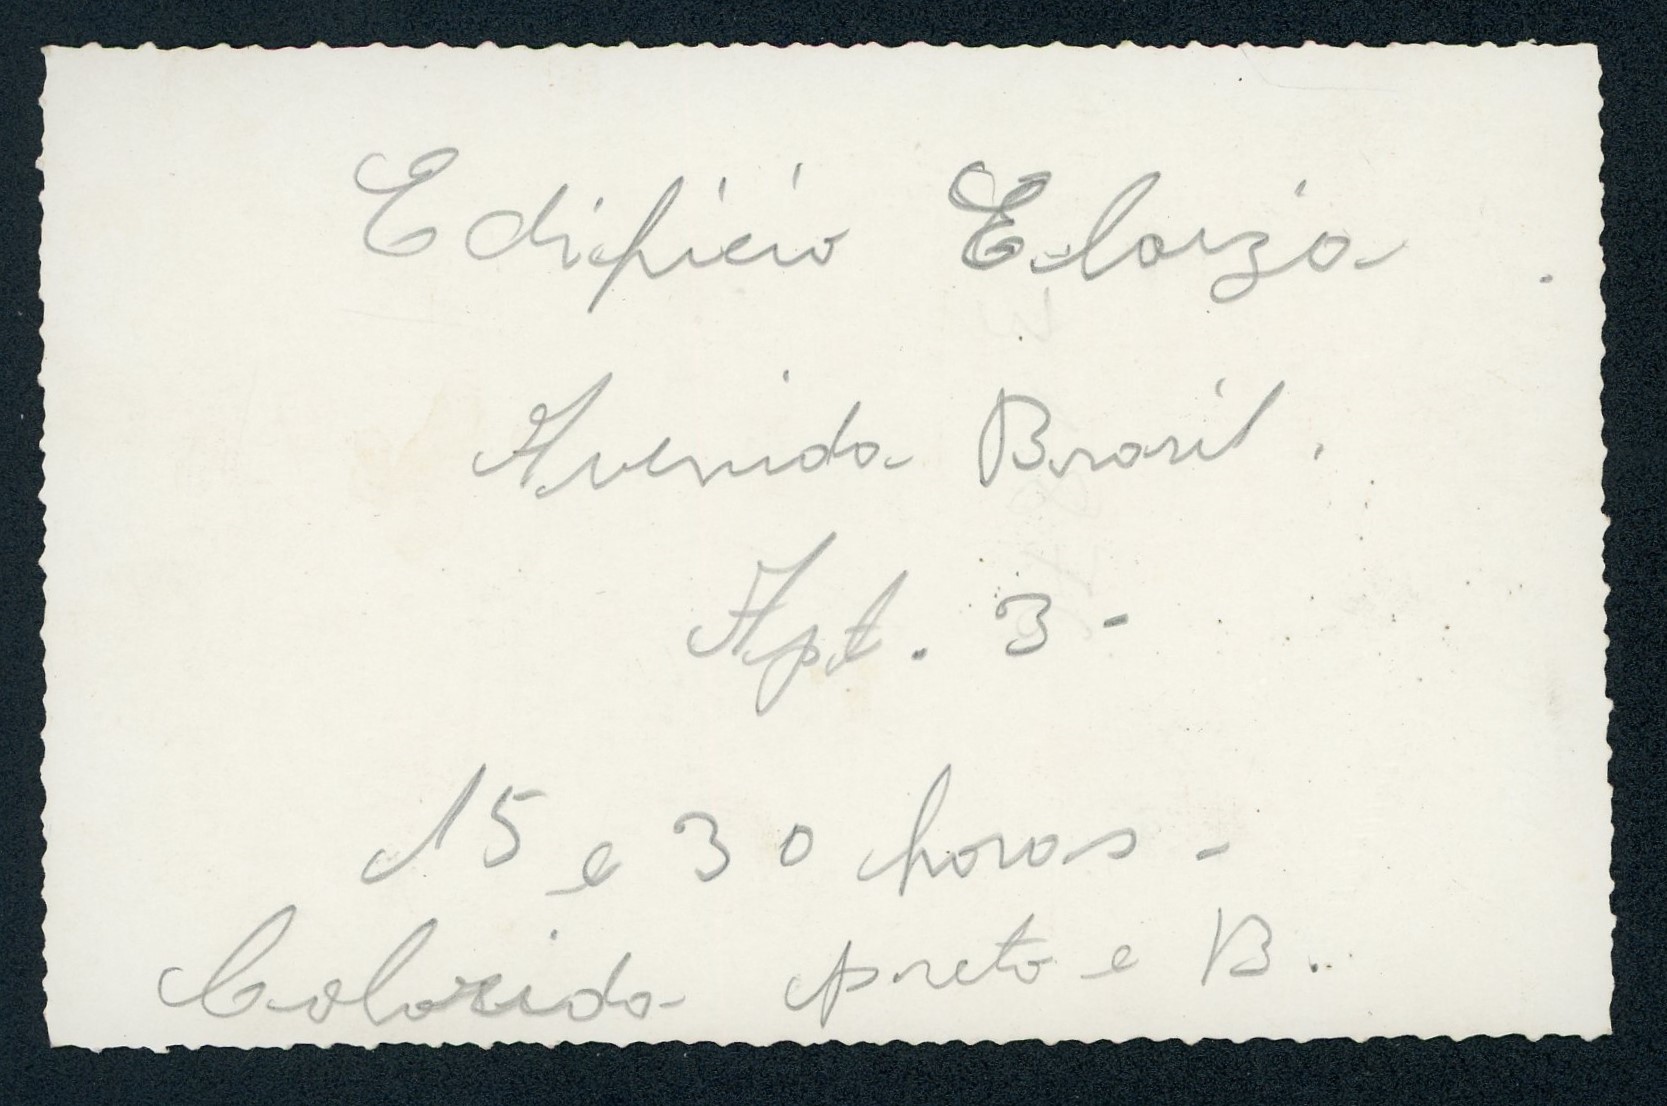 Edifício Eloiza
Avenida Brasil.
Apt. 3-
15 e 30 horas-
Colorida preto e B.